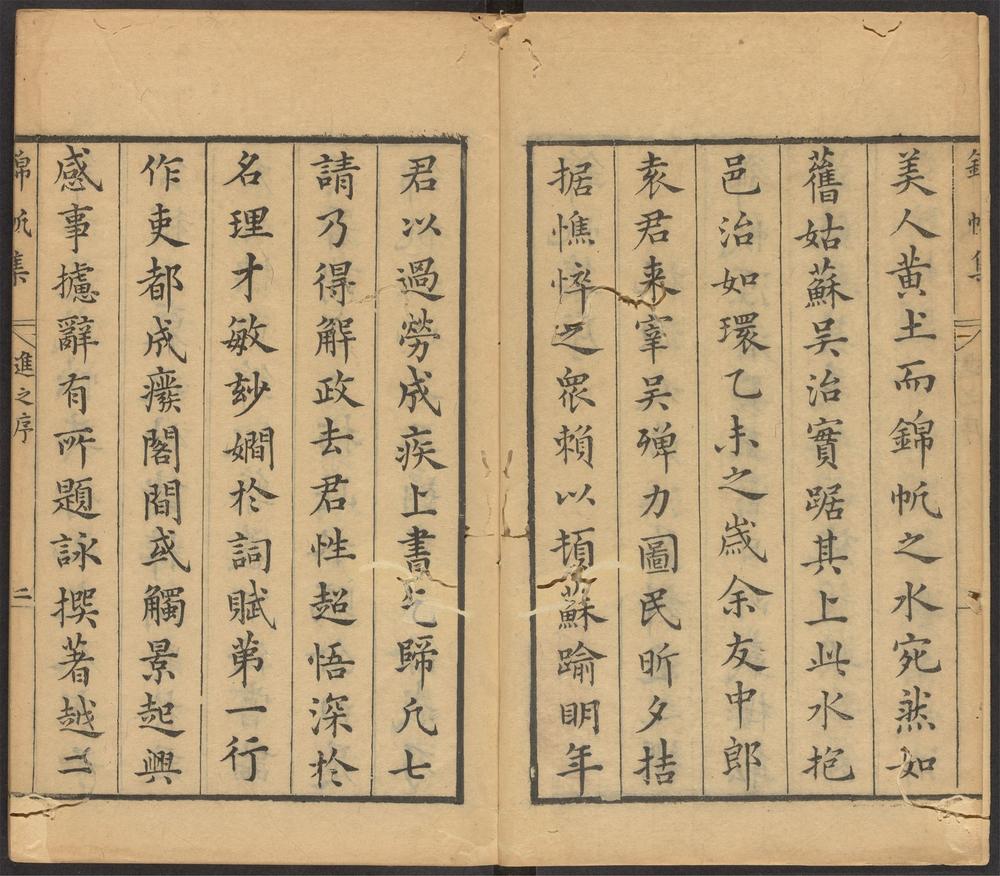 錦帆集
美人黄土而錦帆之水宛然如
舊姑蘇吴治實踞其上此水抱
邑治如環乙未之歲余友中郎
袁君来宰吴殫力圖民昕夕拮
据憔悴之衆賴以頓蘇踰明年
君以過勞成疾上書乞歸凡七
請乃得解政去君性超悟深於
名理才敏玅嫺於詞賦第一行
作吏都成癈閣間或觸景起興
感事攄辭有所題詠撰著越二
錦帆集
進之序
二